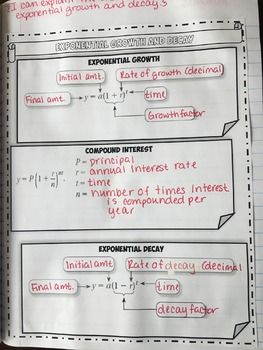 I can explain
exponential growth and decay
EXPONENTIAL GROWTH AND DECAY
EXPONENTIAL GROWTH
Initial amt. Rate of growth (decimal)
Final amt. y = a(1 + r)^t time
Growth factor
COMPOUND INTEREST
P = principal
r = annual interest rate
y = P(1 + r/n)^nt. t = time
n = number of times interest
is compounded per
year
EXPONENTIAL DECAY
Initial amt Rate of decay (decimal)
Final amt. y = a(1 - r)^t time
decay factor